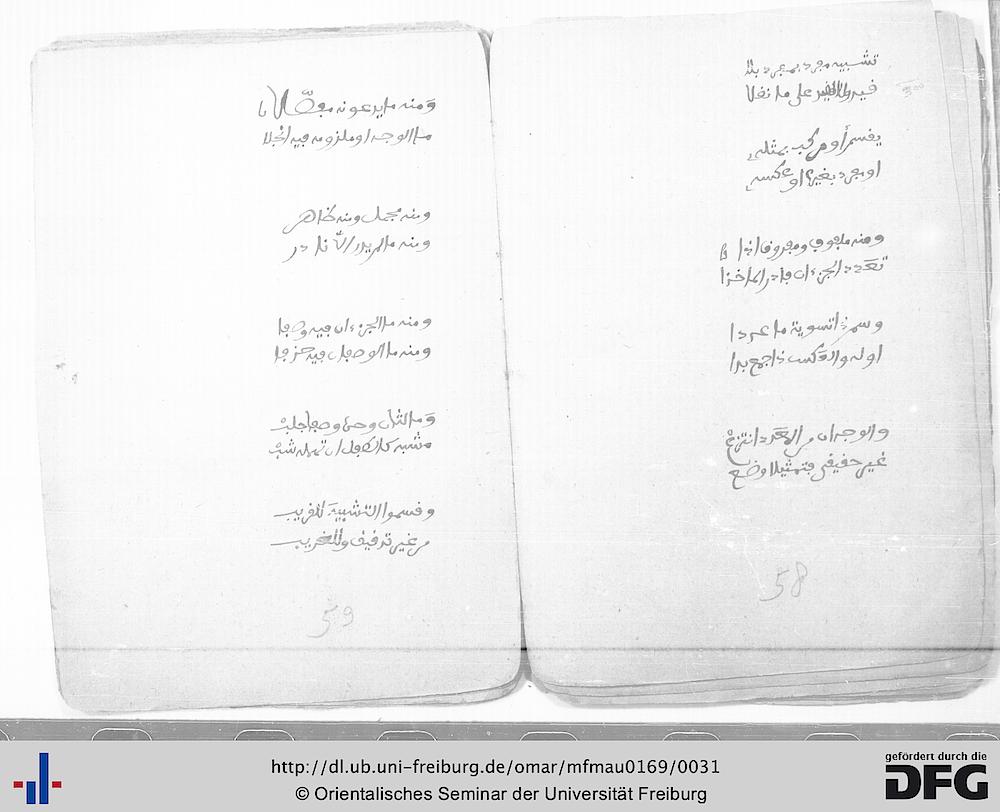 تشبيه مفرد بمفرد بلا
قيد والقيد على ما نقلا
يقسم أو مركب بمثله
او مفرد بغيره او عكسه
ومنه ملفوف ومفروق اذا
تعدد الجزءان فادر الماخذا
وسم ذا تسوية ما عددا
اوله والعكس ذا جمع بدا
والوجه ان من العدد انتزع
غير حقيقي فتمثيلا وضع
58
ومنه ما يدعونه مفصّلا
ما الوجه او ملزومه فيه انجلا
ومنه مجمل ومنه ظاهر
ومنه ما لم يدر الّا نادر
ومنه ما الجزءان فيه وصفا
ومنه ما الوصفان فيه حذفا
وما لثان وحده وصفا جلب
مشبه كالطفل ان تهمله شب
وقسموا التشبيه للقريب
من غير تدقيق وللغريب
59
http://dl.ub.uni-freiburg.de/omar/mfmau0169/0031
© Orientalisches Seminar der Universität Freiburg
gefördert durch die
DFG